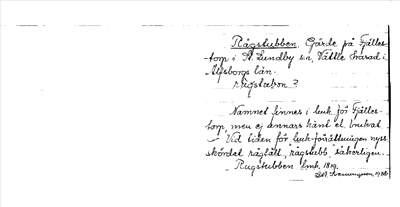 Rågstubben. Gärde på Fjälles-
torp i St. Lundby s:n, Vättle härad i
Älfsborgs län.
rugstubon?
Namnet finnes i luk. för Fjälles-
torp, men ej annars känt el. brukat
Vid tiden för luk-förättningen nyss
skördat råglått, "rågstubb" säkerligen.
Rugstubben lmk. 1819.
1926